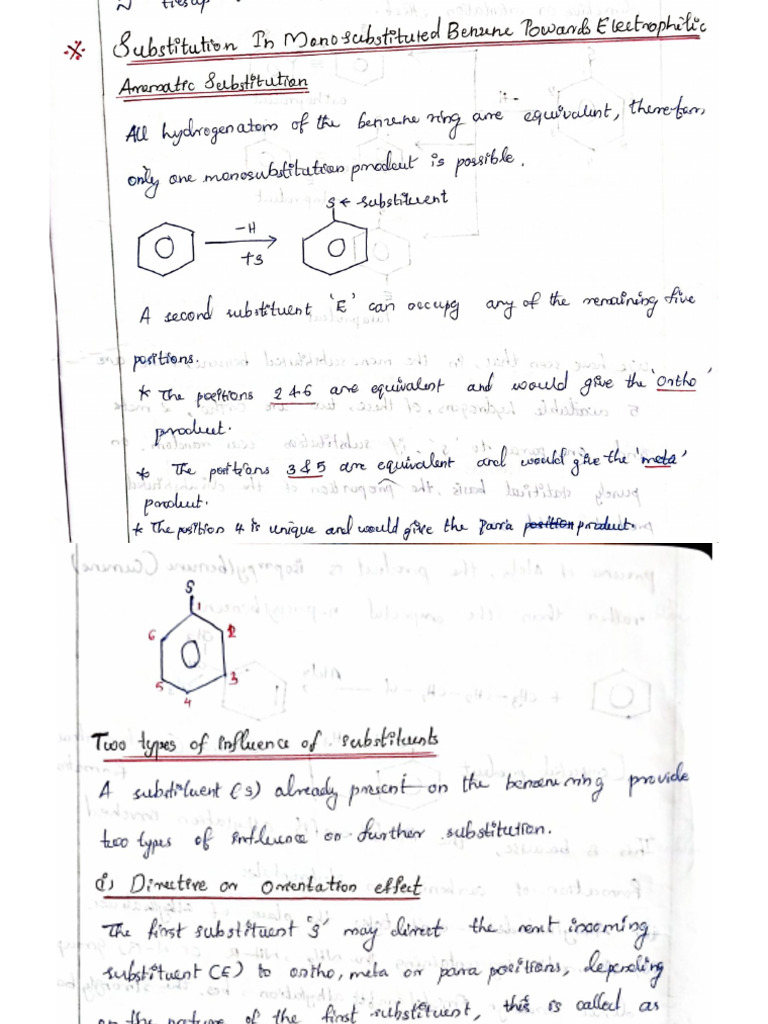 * Substitution In Monosubstituted Benzene Towards Electrophilic
Aromatic Substitution
All hydrogen atom of the benzene ring are equivalent, therefore,
only one monosubstitution product is possible.
S ← substituent
-H
+S
A second substituent 'E' can occupy any of the remaining five
positions.
* The positions 2 & 6 are equivalent and would give the 'ortho'
product.
* The positions 3 & 5 are equivalent and would give the 'meta'
product.
* The position 4 is unique and would give the para position product.
S
1
6 2
5 3
4
Two types of influence of substituents
A substituent (s) already present on the benzene ring provide
two types of influence on further substitution.
i) Directive or Orientation effect
The first substituent 'S' may direct the next incoming
substituent (E) to ortho, meta or para positions, depending
on the nature of the first substituent, this is called as